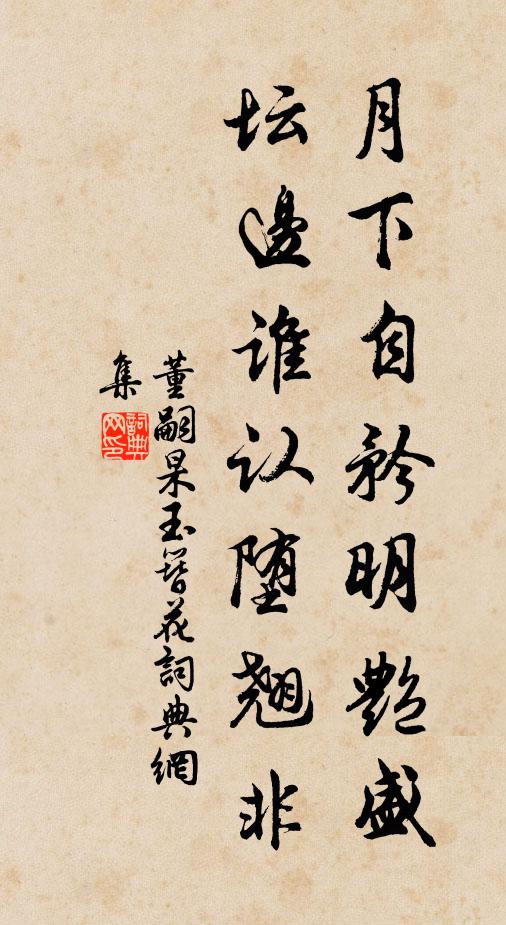 月下自矜明艶盛
坛邊谁认堕翘非
董嗣杲玉簪花詞典網
集
詞典
网印